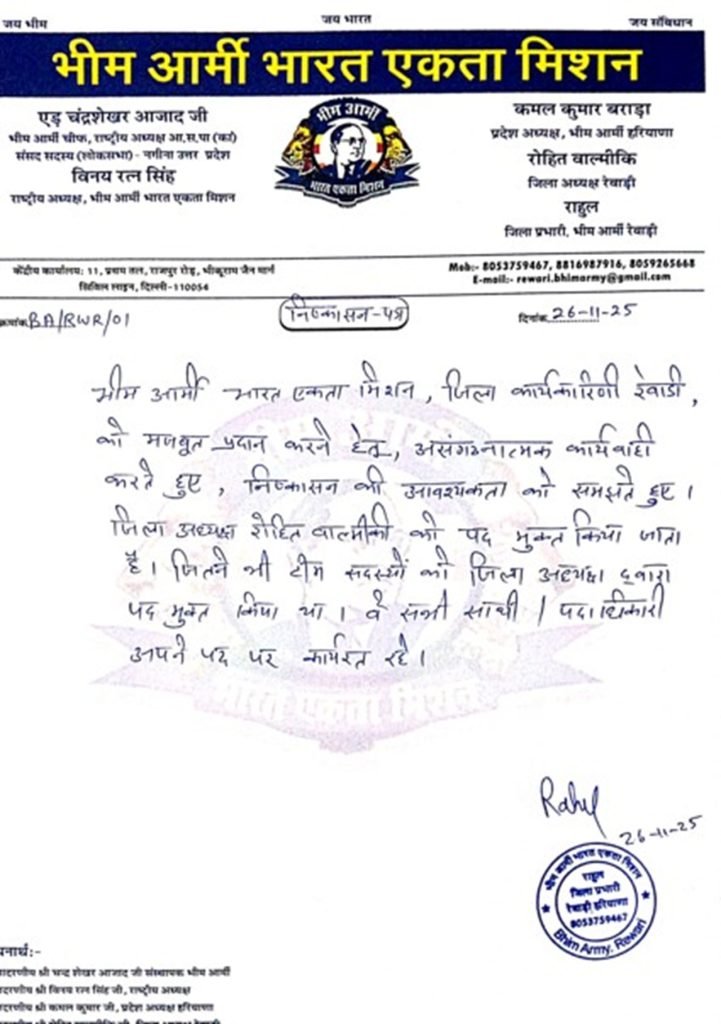 जय भीम
जय भारत
जय संविधान
भीम आर्मी भारत एकता मिशन
एड़ चंद्रशेखर आजाद जी
भीम आर्मी चीफ, राष्ट्रीय अध्यक्ष आ.स.पा (कां)
संसद सदस्य (लोकसभा) - नगीना उत्तर प्रदेश
विनय रत्न सिंह
राष्ट्रीय अध्यक्ष, भीम आर्मी भारत एकता मिशन
भीम आर्मी
भारत एकता मिशन
कमल कुमार बराड़ा
प्रदेश अध्यक्ष, भीम आर्मी हरियाणा
रोहित वाल्मीकि
जिला अध्यक्ष रेवाड़ी
राहुल
जिला प्रभारी, भीम आर्मी रेवाड़ी
केंद्रीय कार्यालय: 11, प्रथम तल, राजपुर रोड़, भीकूराम जैन मार्ग
सिविल लाइन, दिल्ली-110054
Mob:- 8053759467, 8816987916, 8059265668
E-mail:- rewari.bhimarmy@gmail.com
क्रमांक BA/RWR/01
निष्कासन-पत्र
दिनांक 26-11-25
भीम आर्मी भारत एकता मिशन, जिला कार्यकारिणी रेवाडी,
को मजबूत प्रदान करने हेतू, असंगठनात्मक कार्यवाही
करते हुए, निष्कासन की आवश्यकता को समझते हुए।
जिला अध्यक्ष रोहित वाल्मीकी को पद मुक्त किया जाता
है। जितने भी टीम सदस्यों को जिला अध्यक्ष द्वारा
पद मुक्त किया था। वे सभी साथी / पदाधिकारी
अपने पद पर कार्यरत रहे।
भारत एकता मिशन
Rahul
26-11-25
भीम आर्मी भारत एकता मिशन
राहुल
जिला प्रभारी
रेवाड़ी हरियाणा
8053759467
Bhim Army, Rewari
नार्थ:-
दरणीय श्री चन्द्र शेखर आजाद जी संस्थापक भीम आर्मी
दरणीय श्री विनय रत्न सिंह जी, राष्ट्रीय अध्यक्ष
दरणीय श्री कमल कुमार जी, प्रदेश अध्यक्ष हरियाणा